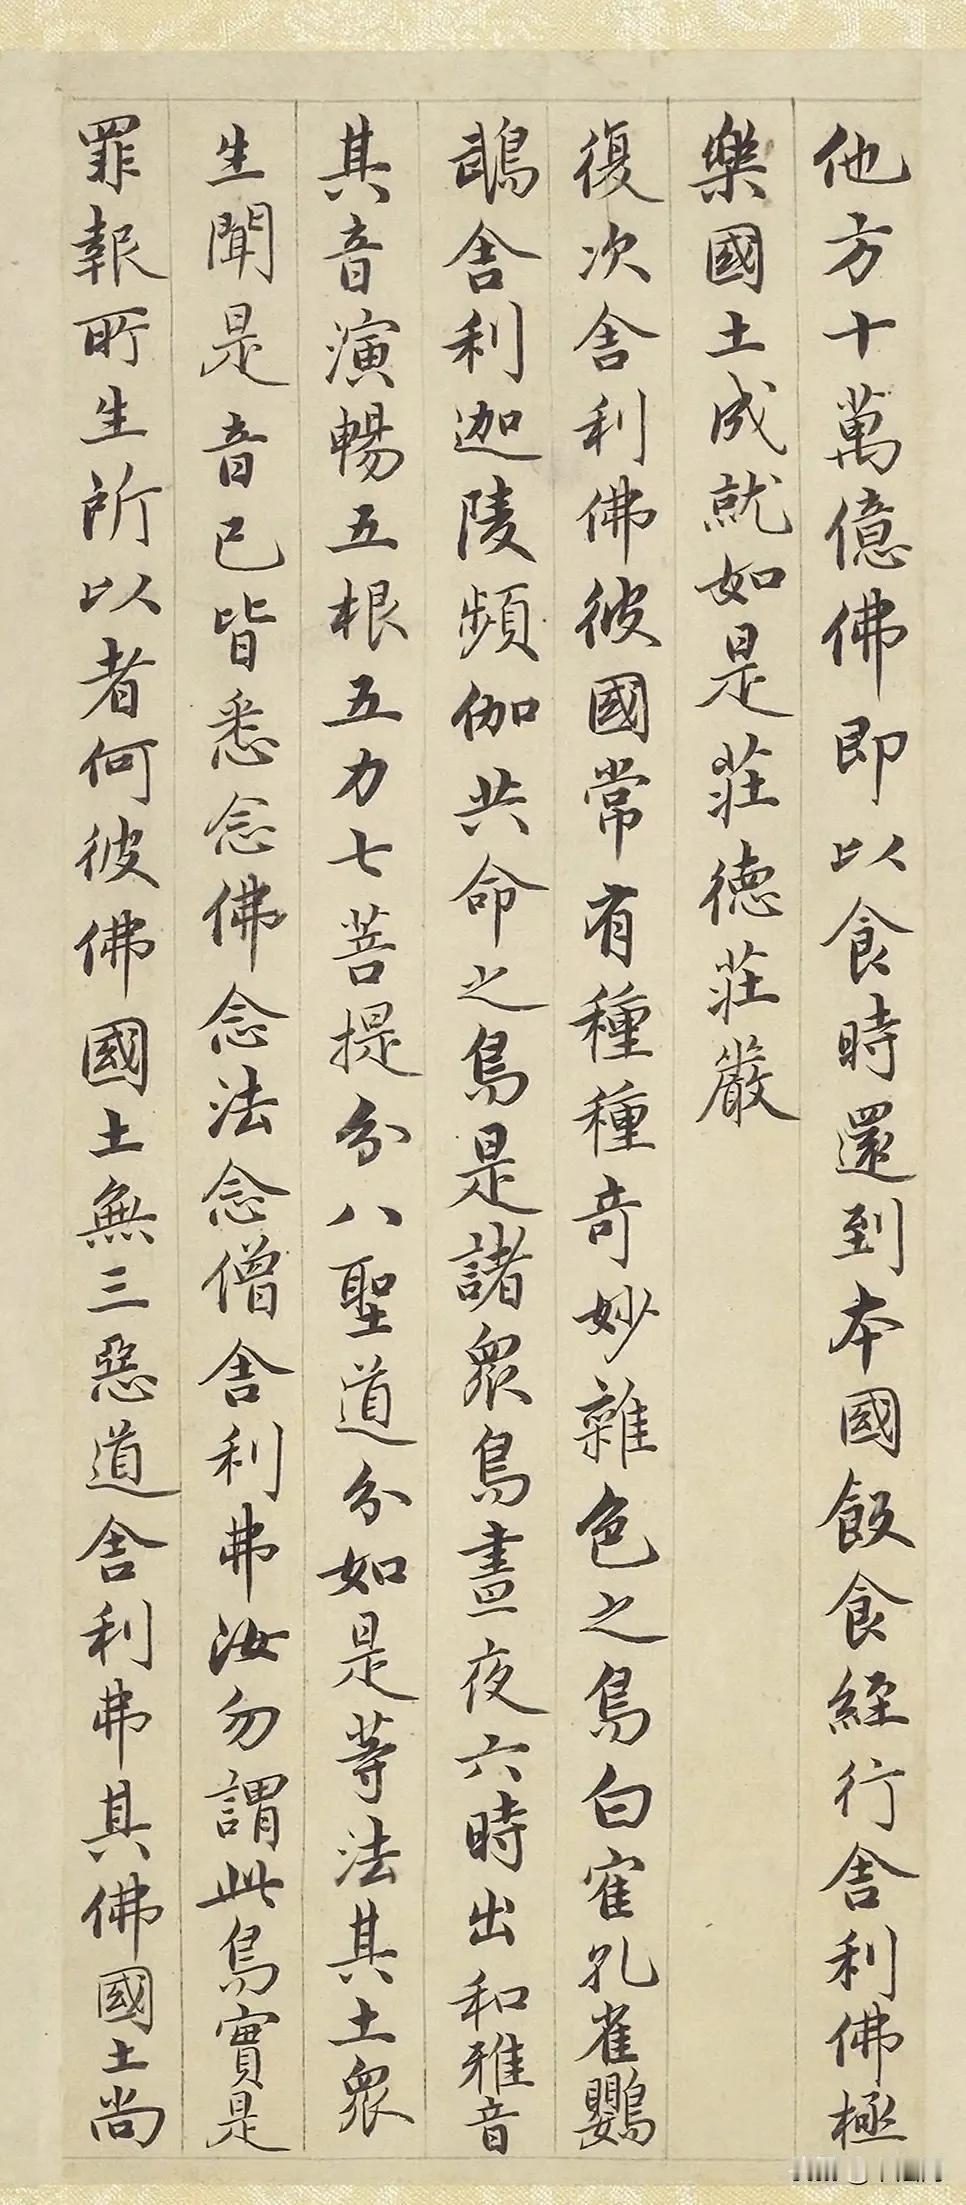 他方十萬億佛即以食時還到本國飯食經行舍利佛極
樂國土成就如是莊德莊嚴
復次舍利佛彼國常有種種奇妙雜色之鳥白隺孔雀鸚
鵡舍利迦陵頻伽共命之鳥是諸眾鳥晝夜六時出和雅音
其音演暢五根五力七菩提分八聖道分如是等法其土眾
生聞是音已皆悉念佛念法念僧舍利弗汝勿謂此鳥實是
罪報所生所以者何彼佛國土無三惡道舍利弗其佛國土尚